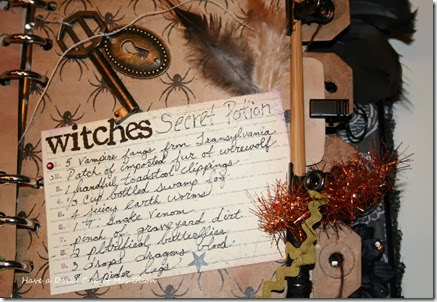 witches Secret Potion
5 Vampire fangs from Transylvania
Patch of imported fur of werewolf
1 handful Toadstool clippings
1/3 Cup bottled swamp fog
4 juicy earth worms
1 T. Snake Venom
pinch of graveyard dirt
2 petrified butterflies
3 Drops dragons blood
8 spider legs
Have a Daily Chef's